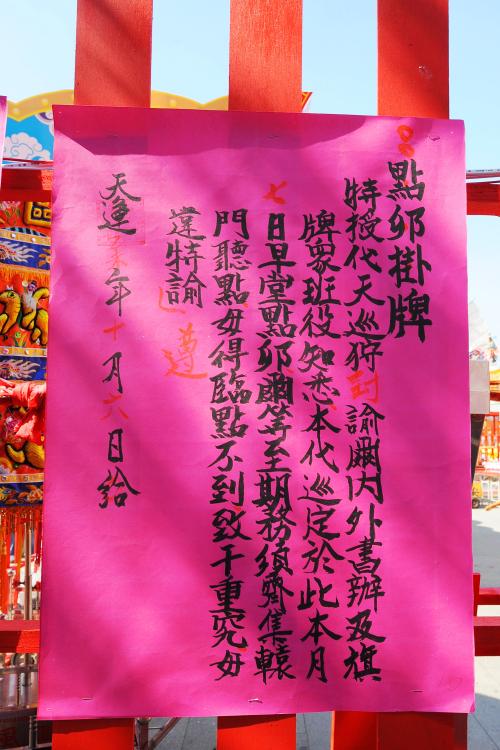 點卯掛牌
特授代天巡狩封諭爾內外書辦及旗
牌眾班役知悉本代巡定於此本月
七日早堂點卯爾等至期務須齊集轅
門聽點毋得臨點不到致干重究毋
違特諭
遵
天運年十月六日給